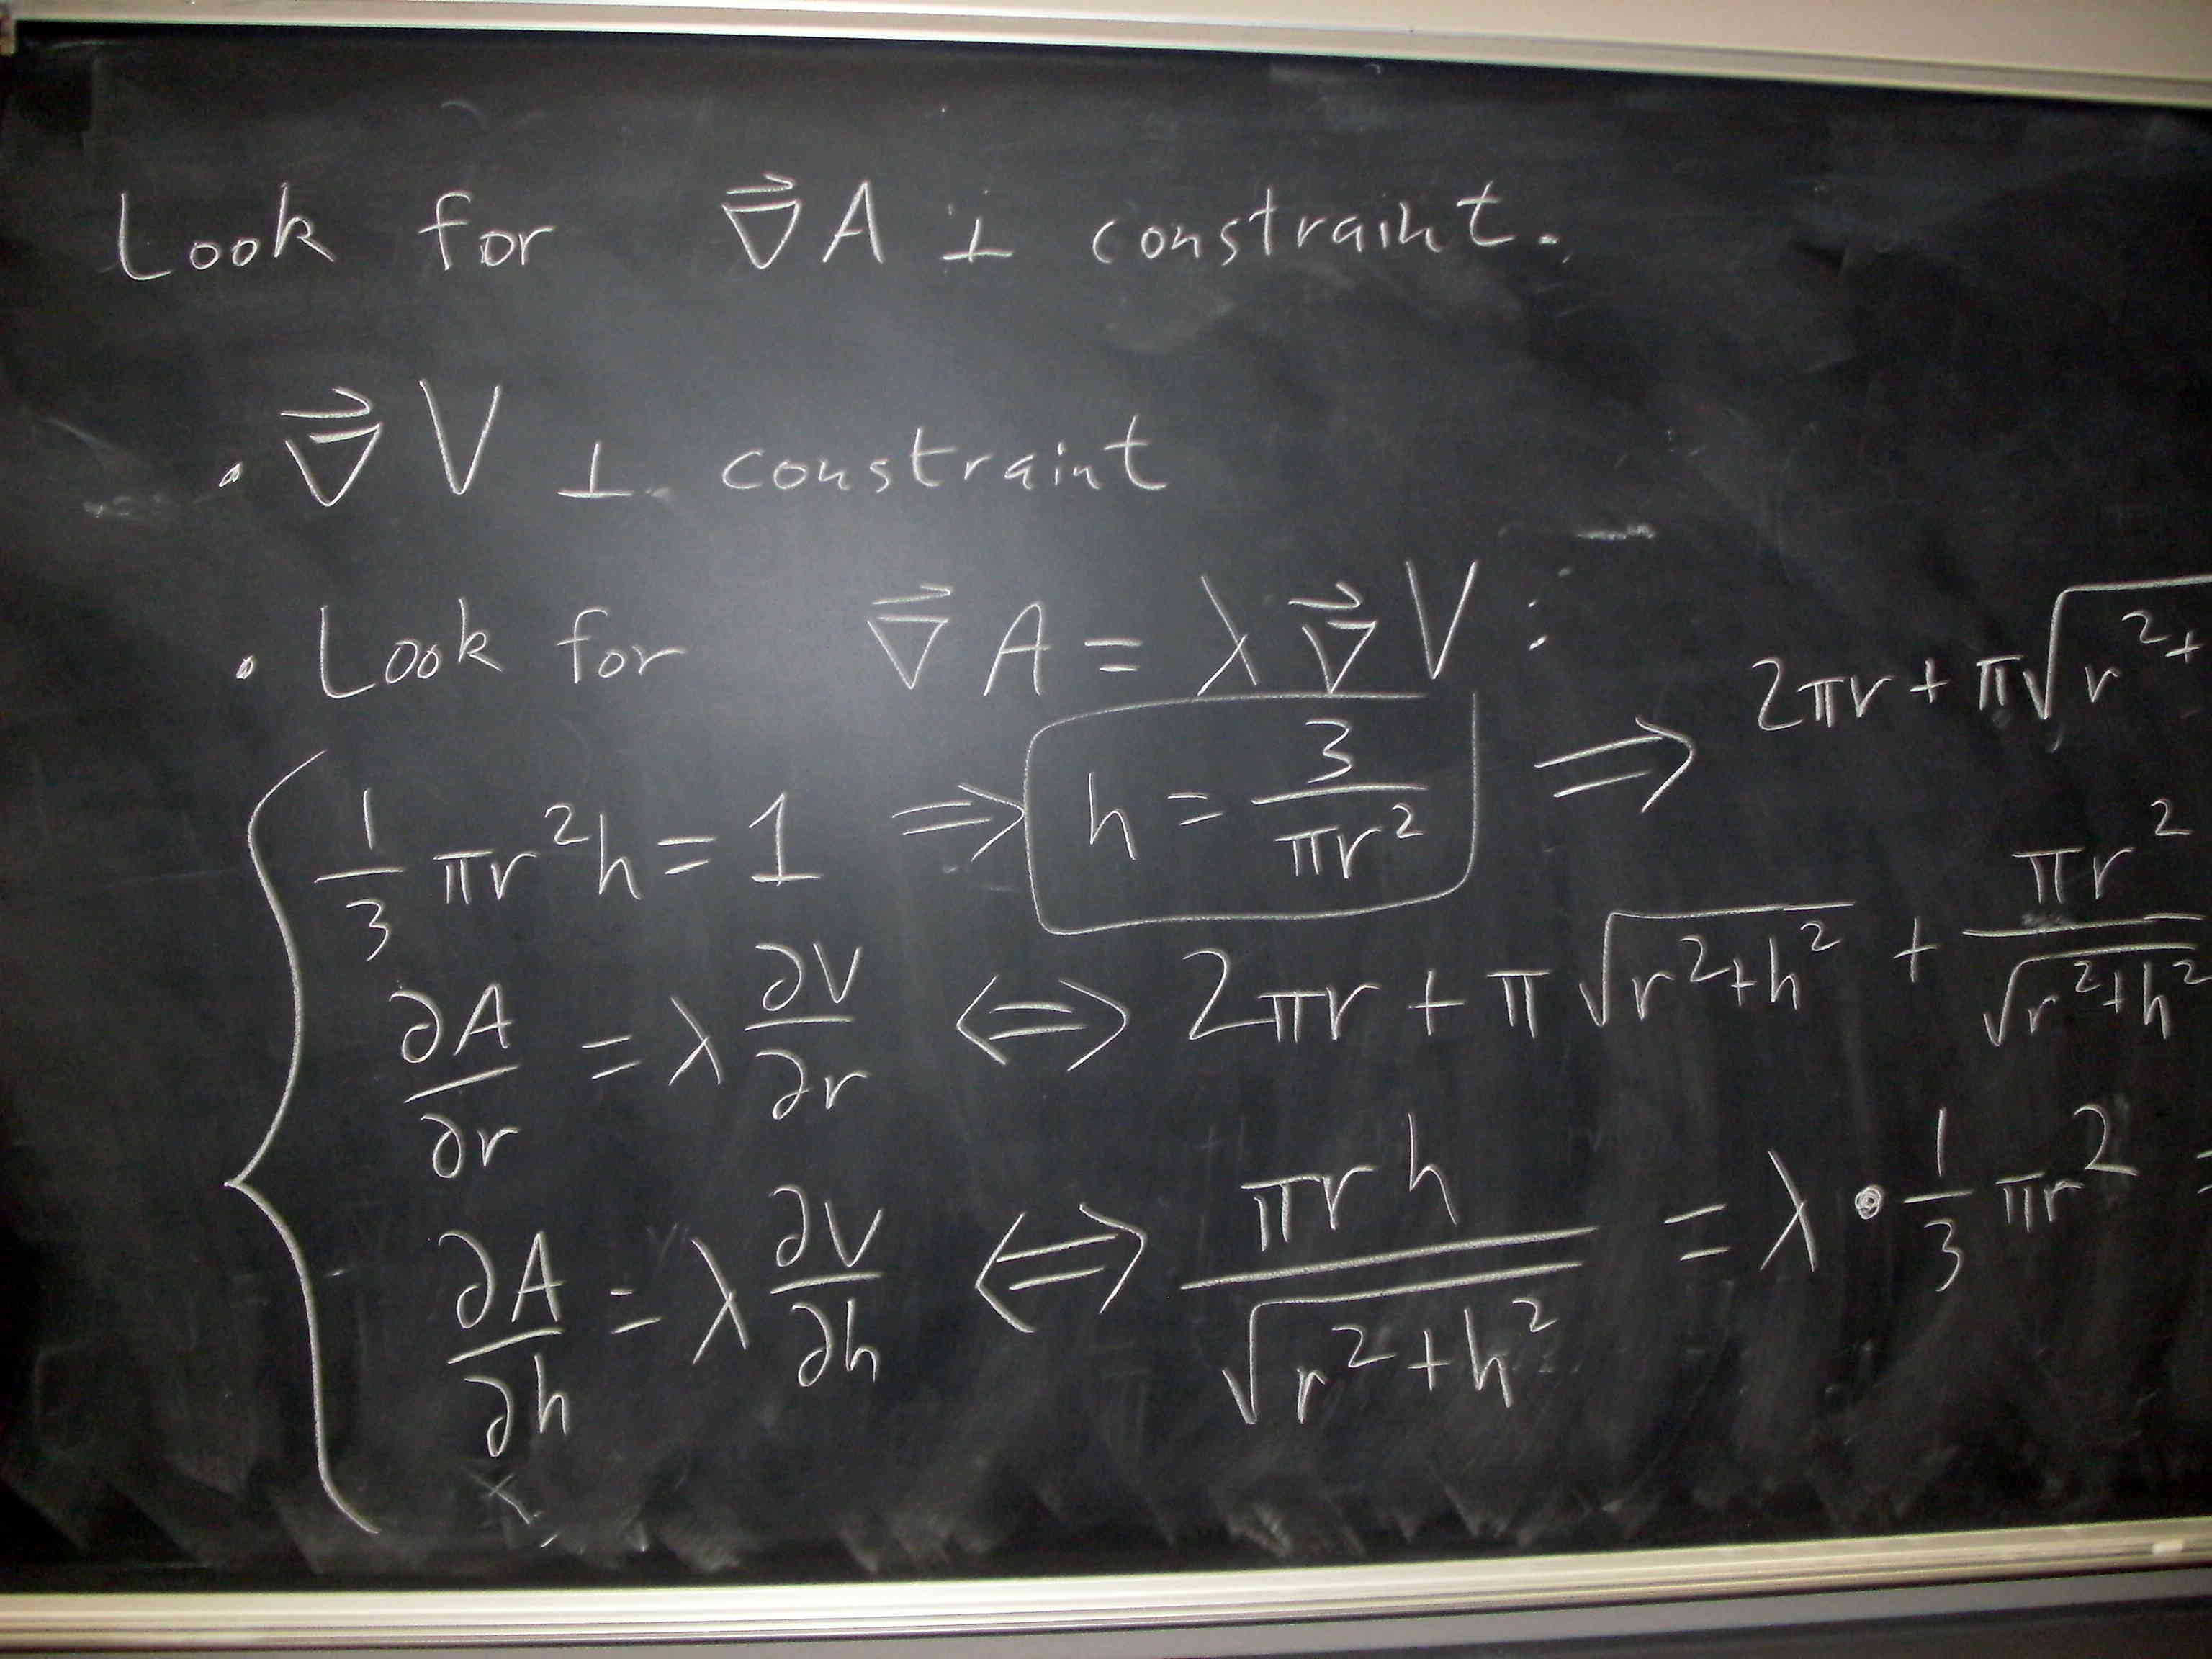 Look for ∇⃗A ⊥ constraint.
• ∇⃗V ⊥ constraint
• Look for ∇⃗A = λ∇⃗V :
1/3 πr²h = 1 ⇒ h = 3/πr² ⇒ 2πr + π√r²+
∂A/∂r = λ ∂V/∂r ⇔ 2πr + π√(r²+h²) + πr²/√(r²+h²)
∂A/∂h = λ ∂V/∂h ⇔ πrh/√(r²+h²) = λ • 1/3 πr²